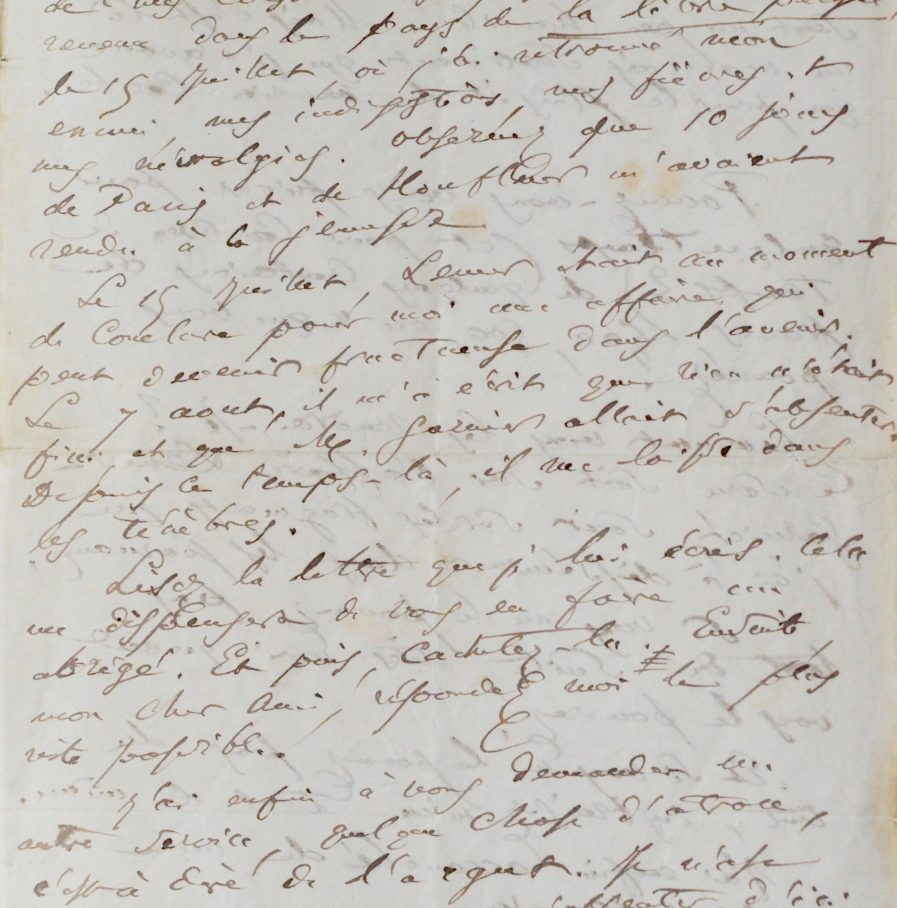 revenu dans le pays de la libre pensée,
le 15 Juillet, où j'ai retrouvé mon
ennui, mes indigestions, mes fièvres et
mes névralgies. Observez que 10 jours
de Paris et de Honfleur m'avaient
rendu à la jeunesse.
Le 15 Juillet, Lemer était au moment
de conclure pour moi une affaire qui
peut devenir fructueuse dans l'avenir.
Le 7 aout, il m'a écrit que rien n'était
fini et que M. Garnier allait s'absenter.
Depuis ce temps-là, il me laisse dans
les ténèbres.
Lisez la lettre que je lui écris. Cela
me dispensera de vous en faire un
abrégé. Et puis, cachetez-la. Ensuite,
mon cher ami, répondez moi le plus
vite possible.
J'ai enfin à vous demander un
autre service, quelque chose d'atroce,
c'est à dire de l'argent. Je n'ose
d'ici